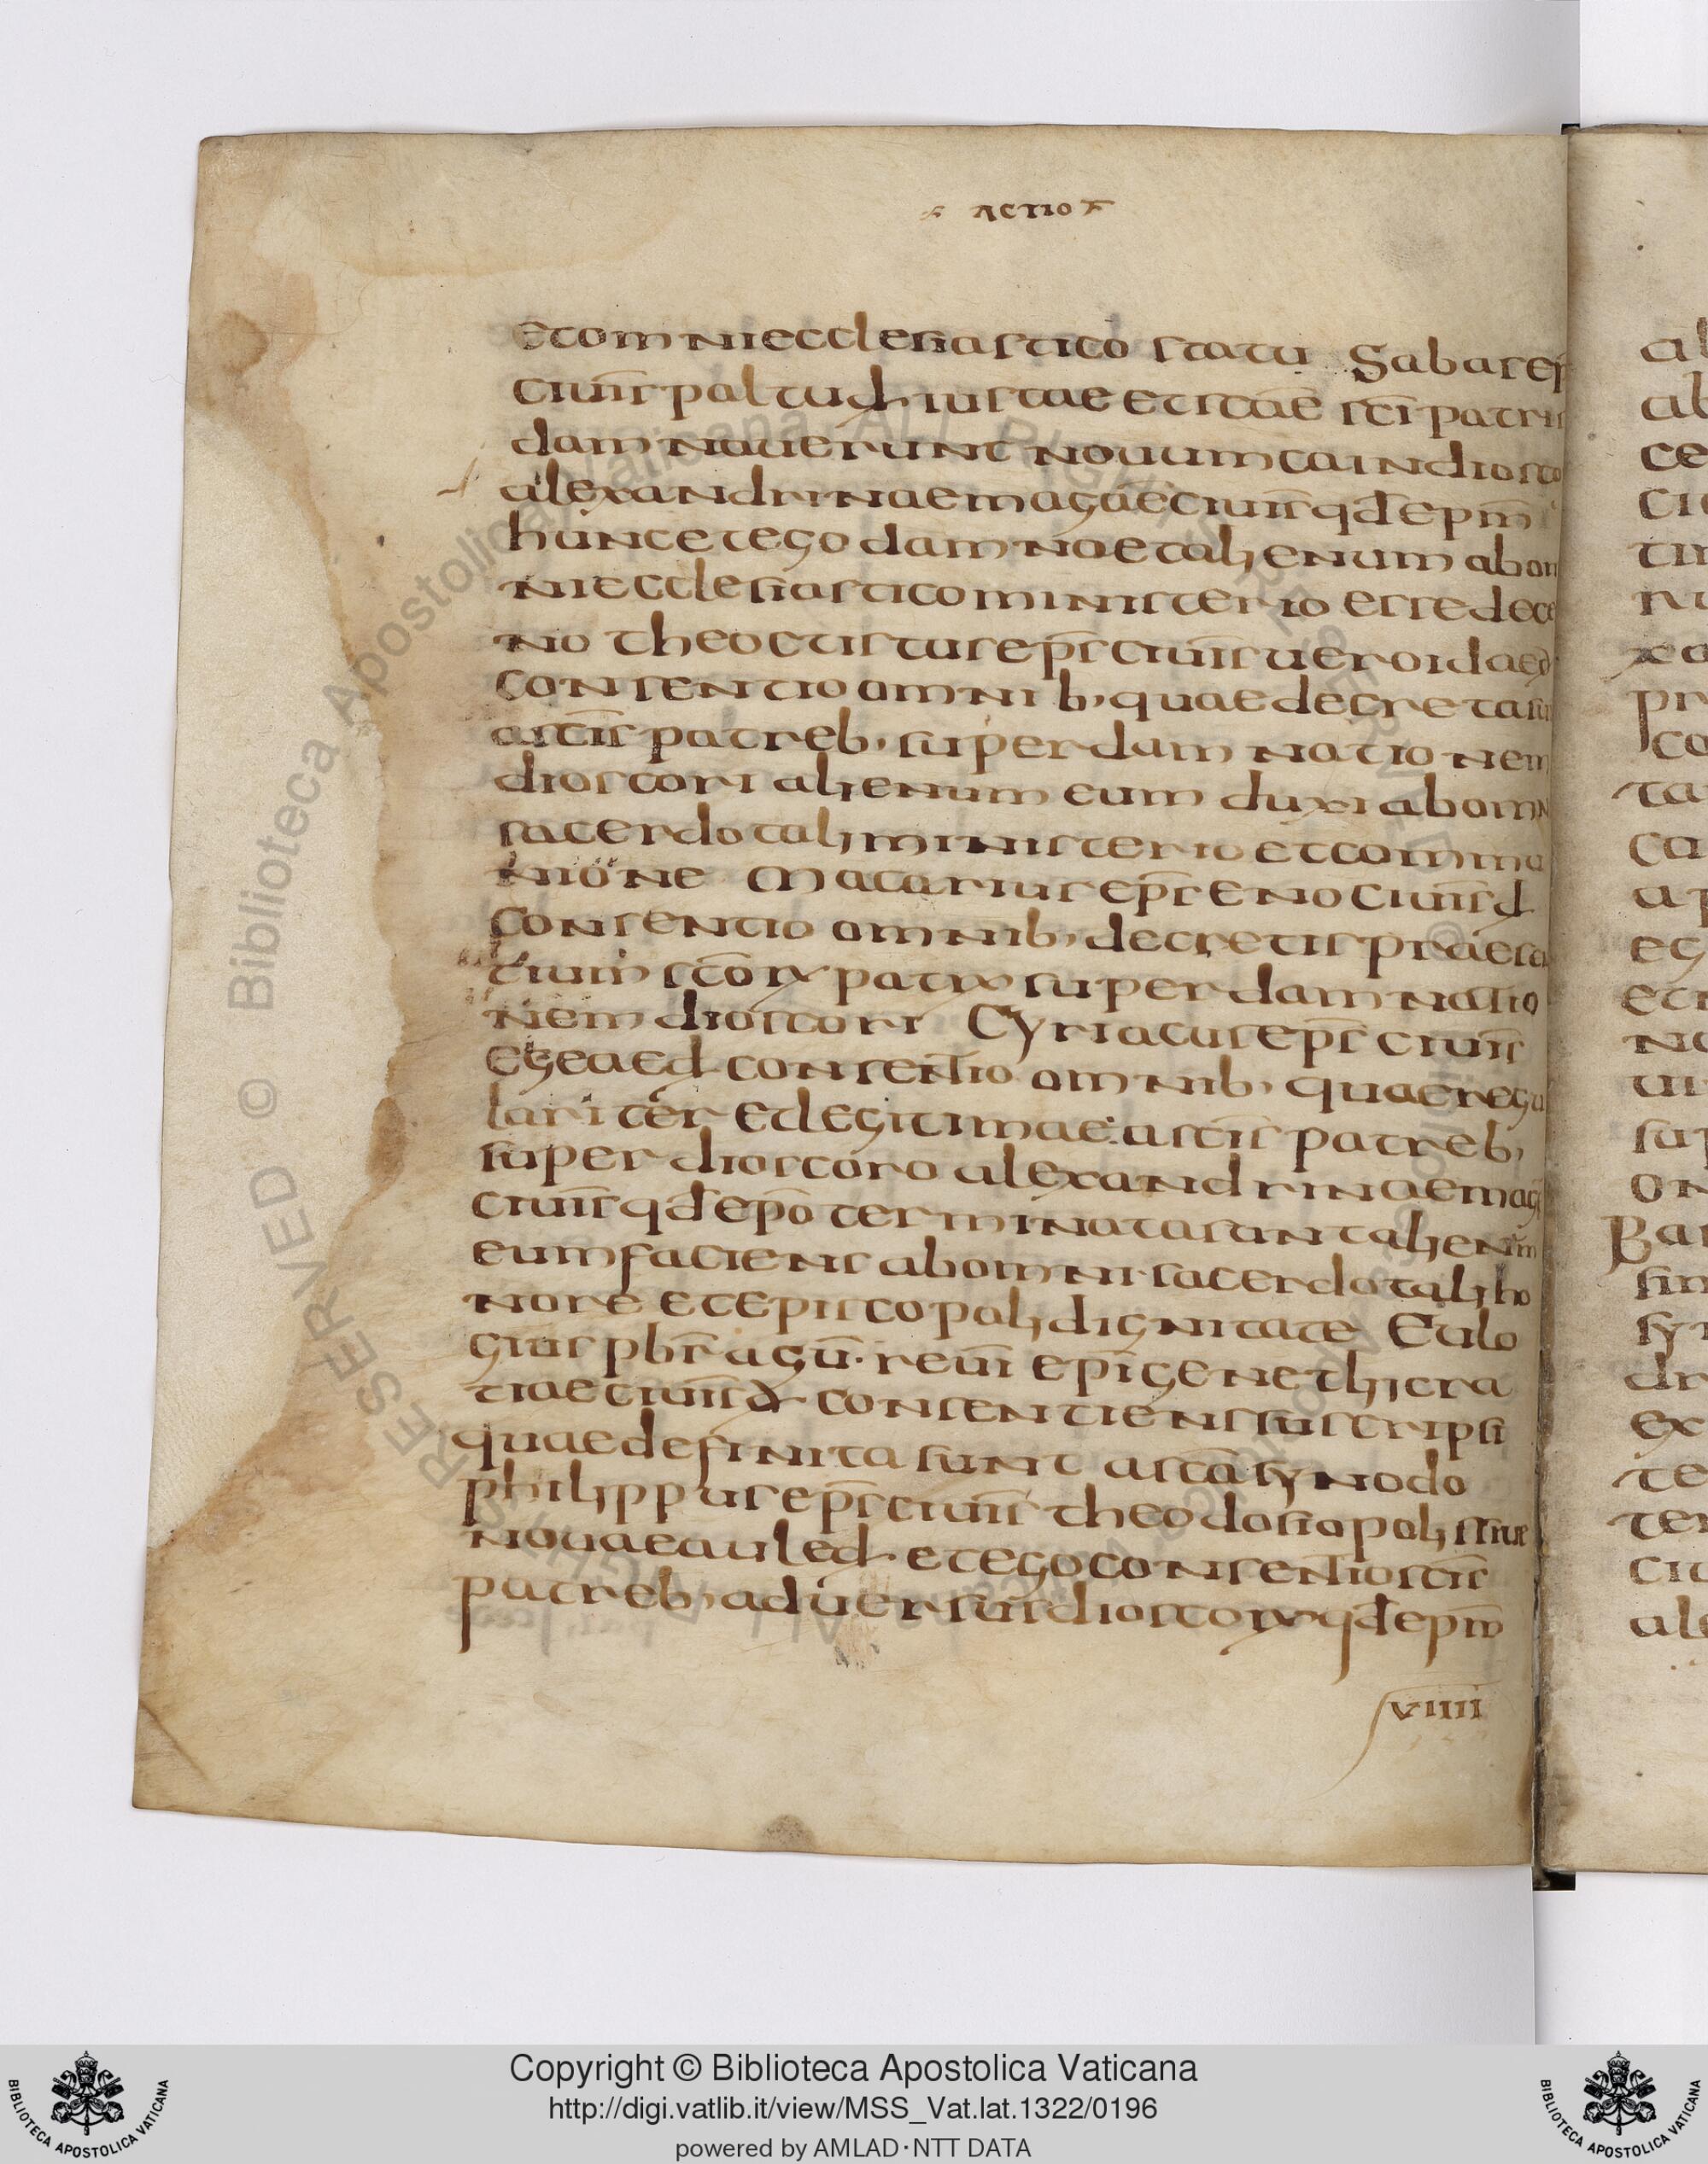 ACTIO
et omni ecclesiastico statu Sabas ep̄s
ciuit̄s paltu đ iustae et sc̄ae sc̄i patris
damnauerunt nouum cain diosco
alexandrinae magnae ciuit̄s qđ ep̄m
hunc et ego damno et alienum ab om
ni ecclesiastico ministerio esse dece
no theoctistus ep̄s ciuit̄s ueroidae đ
consentio omnib, quae decreta su
a sc̄is patreb, super damnationem
dioscori alienum eum duxi ab omn
sacerdotali ministerio et commu
nione Macarius ep̄s eno ciuit̄s đ
consentio omnib, decretis praesen
tium sc̄orum patrum super damnatio
nem dioscori Cyriacus ep̄s ciuit̄s
egea eđ consentio omnib, quae regu
lariter et legitimae a sc̄is patreb,
super dioscoro alexandrinae mag
ciuit̄s qđ ep̄o terminata sunt alienum
eum faciens ab omni sacerdotali ho
nore et episcopali dignitate Eulo
gius pb̄r agū. reuī ep̄i genethi cra
tiae ciuit̄s đ consentiens suscripsi
quae definita sunt a sc̄a synodo
philippus ep̄s ciuit̄s theodosiopoli siue
nouae auleđ et ego consentio sc̄is
patreb, aduersus dioscorum qđ ep̄m
VIIII
al
ab
ce
tin
xa
pr
co
ta
ca
eg
no
ui
sup
on
Bas
sim
dr
ex
te
ter
ale
© Biblioteca Apostolica Vaticana ALL RIGHTS RESERVED
Copyright © Biblioteca Apostolica Vaticana
http://digi.vatlib.it/view/MSS_Vat.lat.1322/0196
powered by AMLAD·NTT DATA
BIBLIOTECA APOSTOLICA VATICANA
BIBLIOTECA APOSTOLICA VATICANA